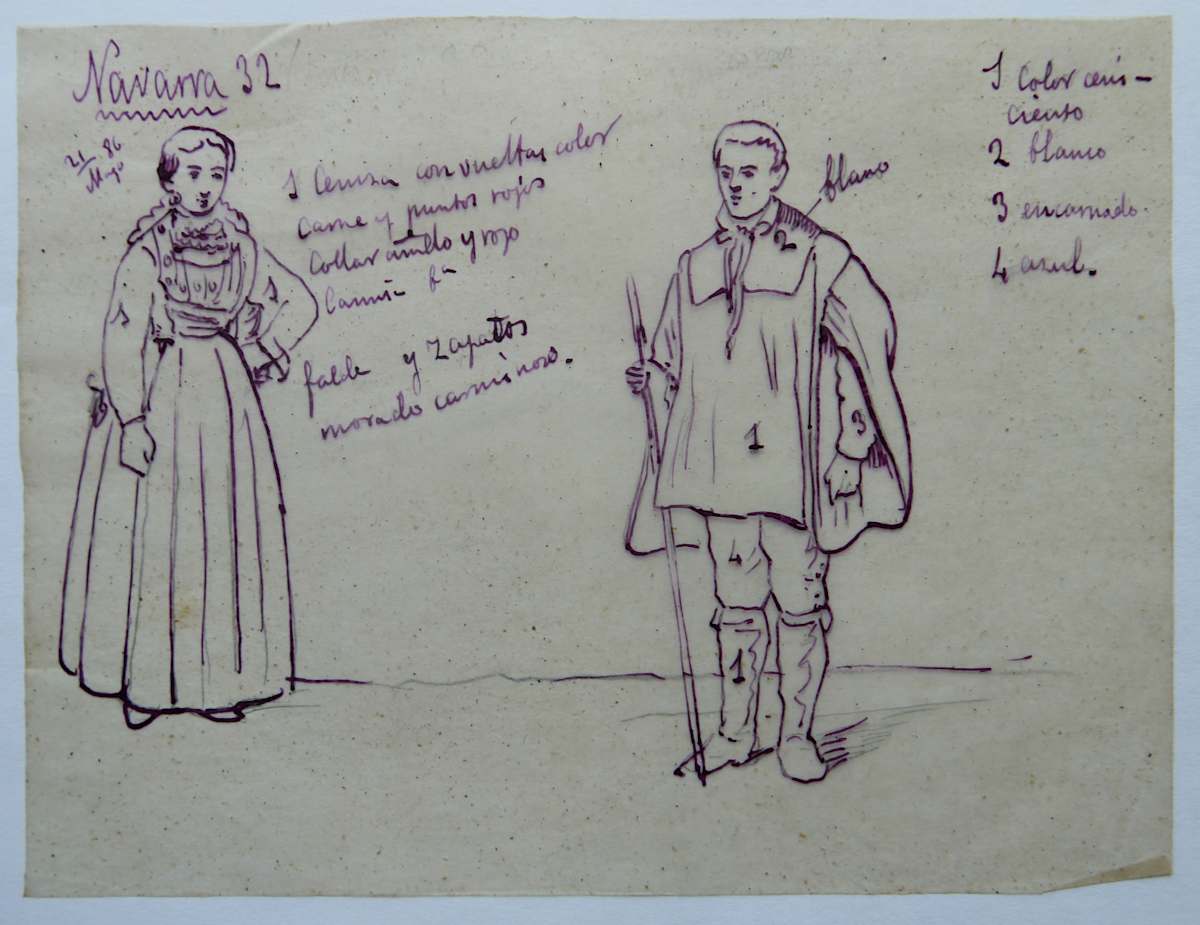 Navarra 32
21 86
Mayo
1 Ceniza con vueltas color
carne y puntos rojos
Collar y rojo
falda y zapatos
morado carminoso.
blanco
1 Color ceni-
ciento
2 blanco
3 encarnado
4 azul.
1
1
2
3
1
4
1